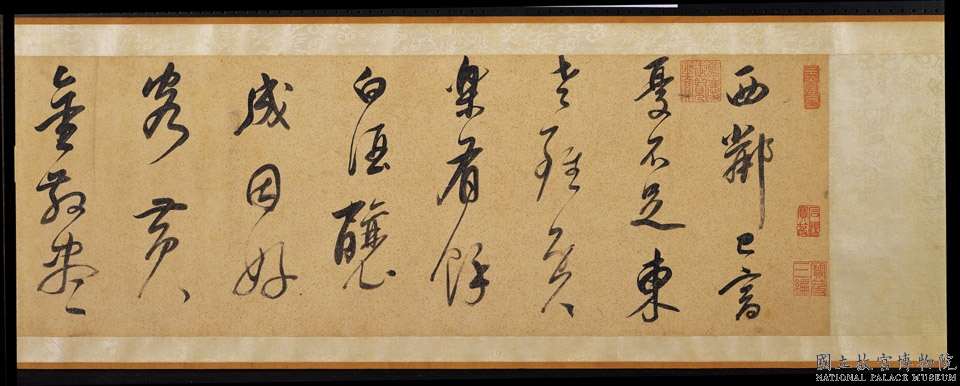 西鄰已富
憂不足東
老雖貧
樂有餘
白酒釀
成因好
客黃
金散盡
石渠寶笈
寶笈三編
國立故宮博物院
NATIONAL PALACE MUSEUM